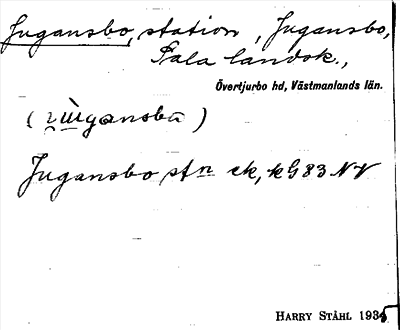 Jugansbo, station, Jugansbo,
Sala landsk.,
Övertjurbo hd, Västmanlands län.
Jugansbo stn ek, kG83NV
HARRY STÅHL 1935